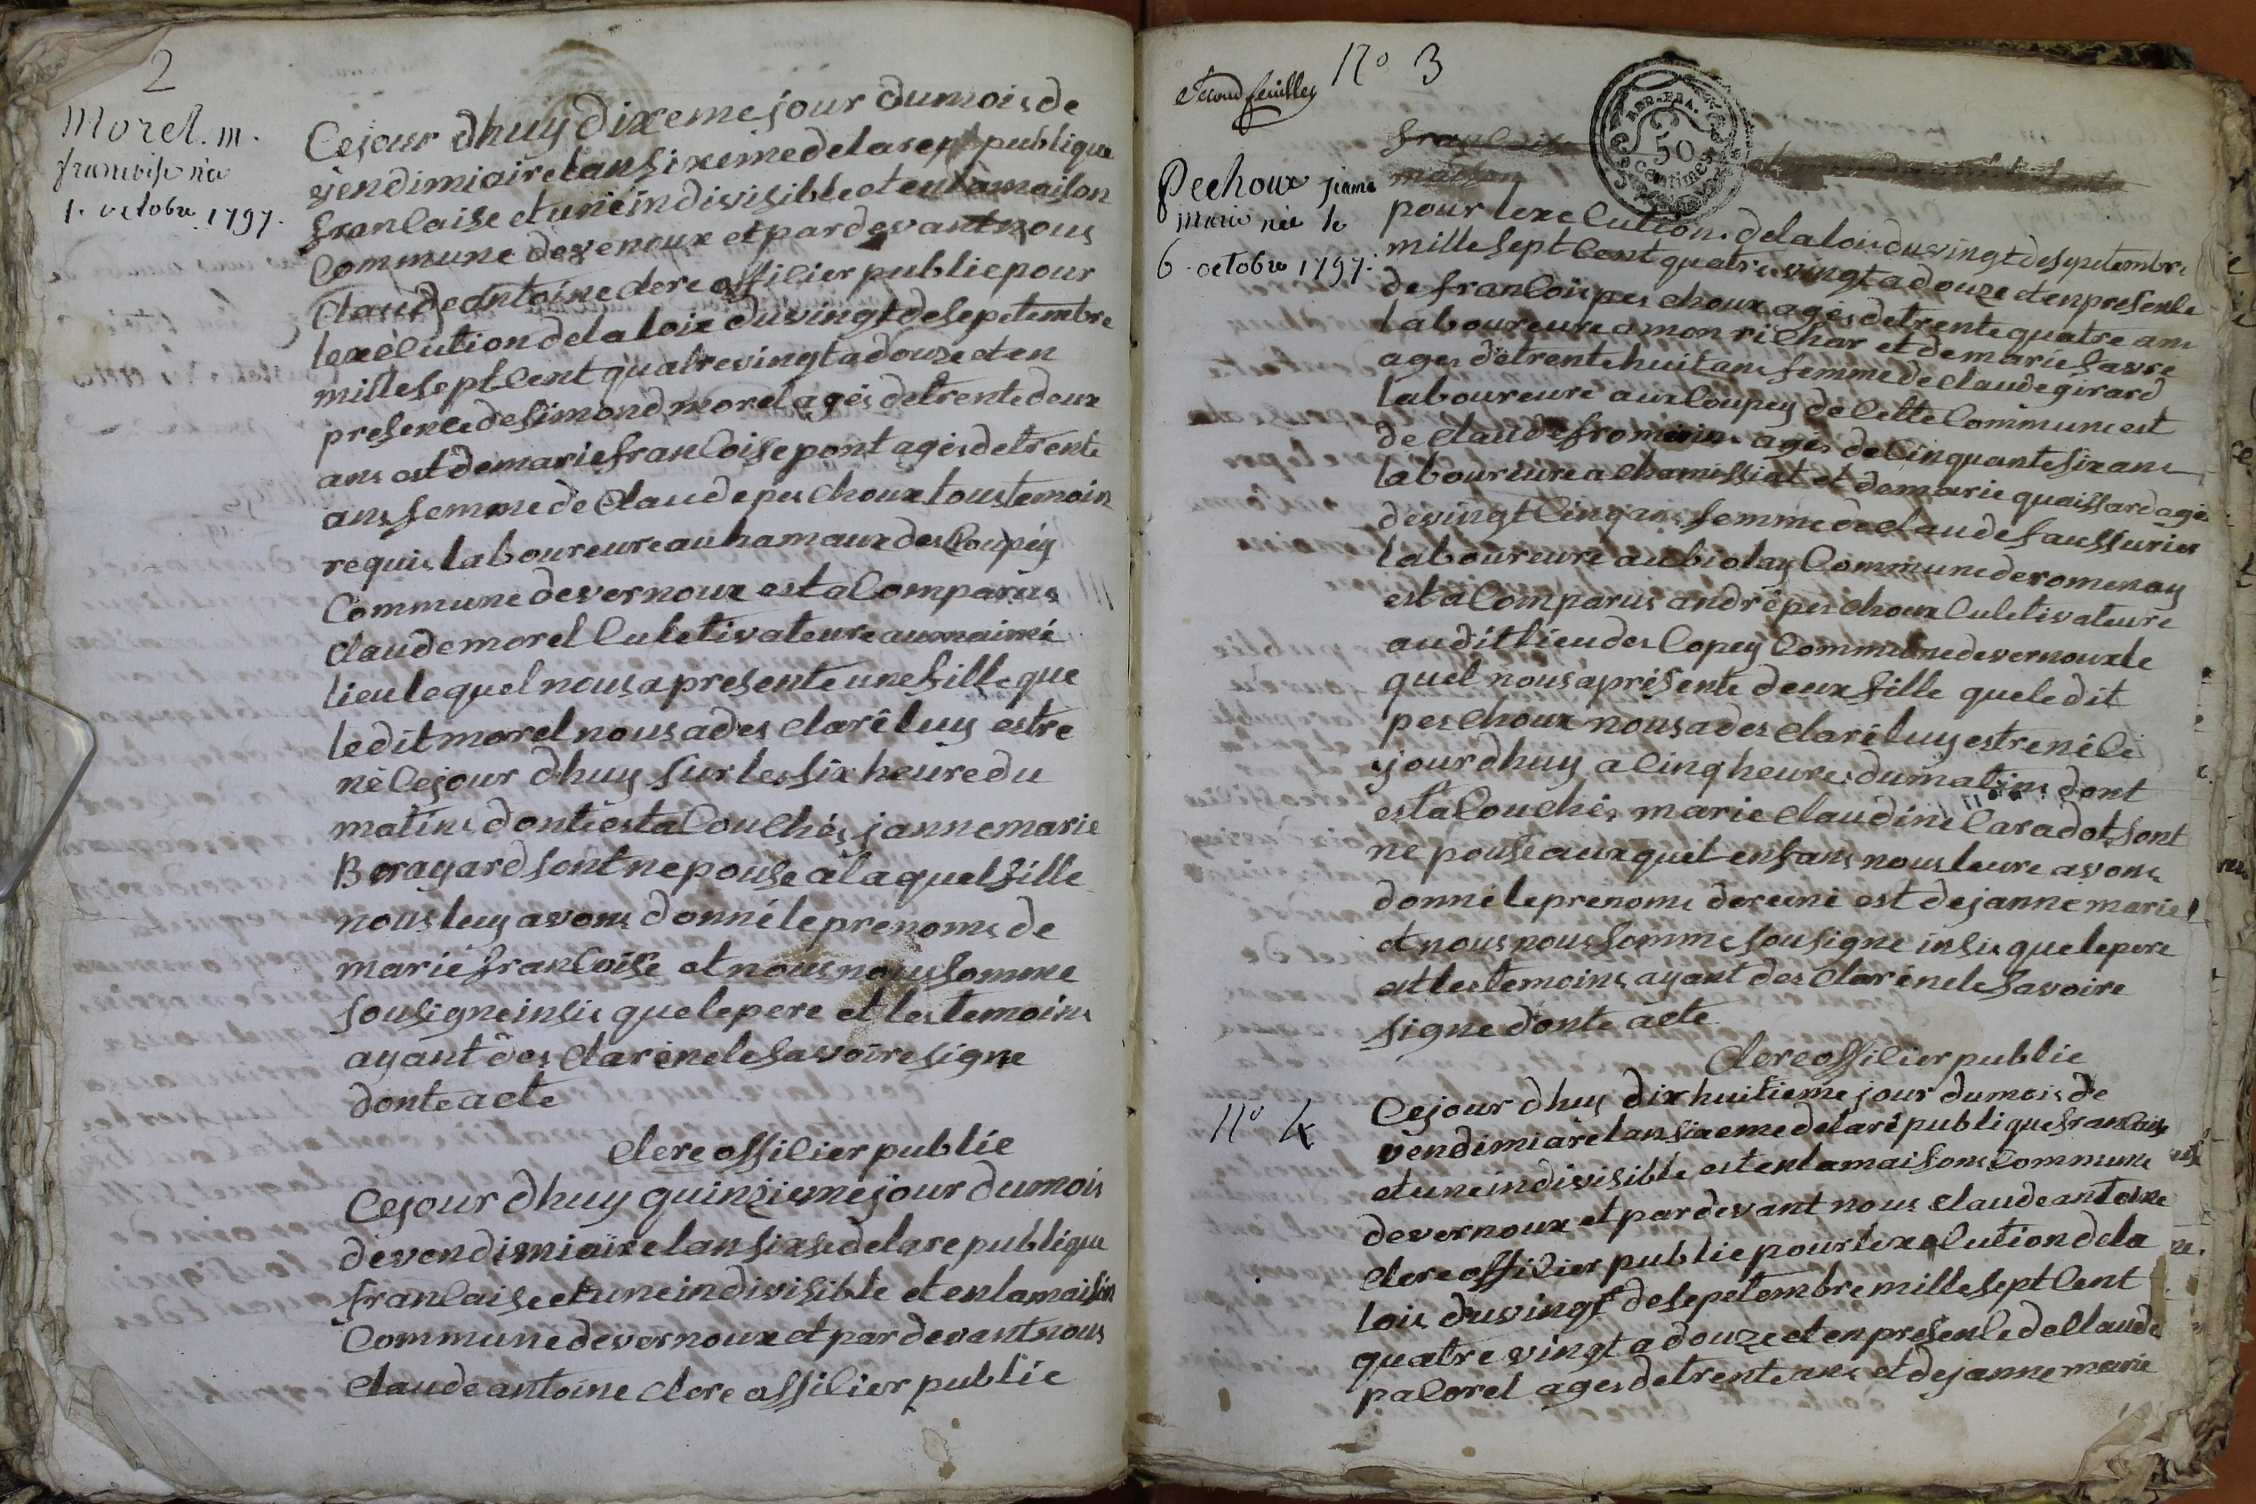 2
Morel. m.
francoise née
1. octobre 1797.
Cejour dhuy dixeme jour dumois de
vendimiaire lan sixieme dela republique
francaise et une indivisible et en la maison
Commune de vernoux et par devant nous
Claude antoine clere offilier publie pour
lexècution dela loix du vingt de sepetembre
mille sept Cent quatre vingt a douze et en
presence de simond morel agés de trente deux
ans est de marie francoise pont agés de trente
ans femme de Claude pes choux tous temoin
requis laboureure au hamaux des Coupéy
Commune de vernoux est a Comparus
Claude morel Culetivateure au maimé
lieu lequel nous a presente une fille que
le dit morel nous a des clarê luy estre
né le jour dhuy sur les six heure du
matins donte est a Couchés janne marie
Borayard sont ne pouse a laquel fille
nous luy avons donné le prenoms de
marie francoise et nous nous somme
sousigne insis que le pere et les temoins
ayant des clarénele savoire signe
donte acte
Clere offilier publie
Cejour dhuy quinzieme jour dumois
de vendimiaire lan sixse dela republique
francaise et une indivisible et en la maison
Commune de vernoux et par devant nous
Claude antoine clere offilier publie
second feuilles
N° 3
REP. FRA.
50
Centimes
Pechoux jeanne
marie née le
6. octobre 1797.
francaise
maison
pour lexecution dela lois du vingt de sepetembre
mille sept Cent quatre vingt a douze et en presente
de francois pes choux agés de trente quatre ans
laboureure a mon richar et de marie favre
ages de trente huit ans femme de claude girard
laboureure aux Coupey de Cette Commune est
de claude fromerin ages de Cinquante six ans
laboureure a chamissiat et de marie quaissard agés
de vingt Cinq ans femme de claude faussurier
laboureure au biolay Commune de romenay
est a Comparus andrê pes choux Culetivateure
au dit lieu des Copey Commune de vernoux le
quel nous a présente deux fille que le dit
pes choux nous a des claré luy estre né le
jour dhuy a Cinq heure du matins dont
est a Couchés marie claudine Caradot sont
ne pouse aux quel enfans nous leure avons
donné le prenoms de reine est de janne marie
et nous nous somme sousigne insis que le pere
est les temoins ayant des clarénele savoire
signe donte acte
Clere offilier publie
N° 4
Cejour dhuy dix huitieme jour dumois de
vendimiare lan sixeme dela republique francaise
et une indivisible est en la maisons Commune
de vernoux et par devant nous claude antoine
clere offilier publie pour lexecution dela
lois du vingt de sepetembre mille sept Cent
quatre vingt a douze et en presente de Claude
paCorel ages de trente ans et de janne marie